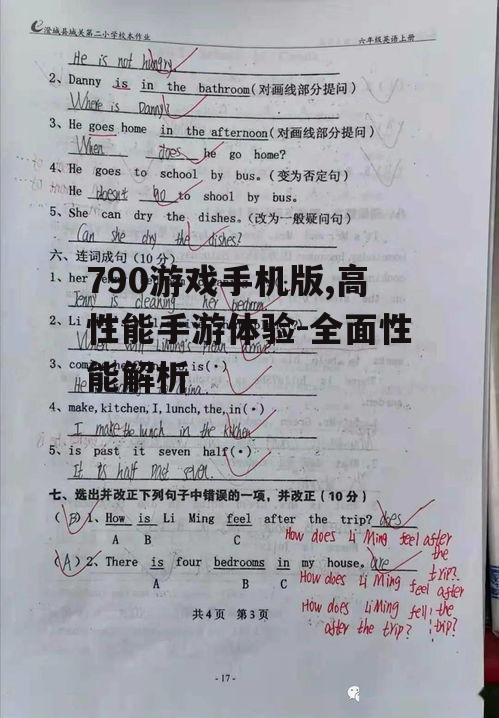 澄城县城关第二小学校本作业 六年级英语上册
He is not hungry
2、Danny is in the bathroom(对画线部分提问)
Where is Danny?
3、He goes home in the afternoon(对画线部分提问)
When does he go home?
4、He goes to school by bus.(变为否定句)
He doesn't go to shool by bus.
5、She can dry the dishes.(改为一般疑问句)
Can she dry the dishes?
六、连词成句(10分)
790游戏手机版,高
性能手游体验-全面性
能解析
1、her
Jenny is cleaning her bedroom
2、Li
3、com is(·)
He
4、make,kitchen,I,lunch,the,in(·)
I make the lunch in the kitchen
5、is past it seven half(·)
It is half past seven.
七、选出并改正下列句子中错误的一项,并改正(10分)
(B)1、How is Li Ming feel after the trip? does
A B C
How does Li Ming feel after the trip?
(A)2、There is four bedrooms in my house. are
A B C
How does Li Ming feel after the trip?
How does Li Ming fell after the trip?
共4页 第3页
- 17 -